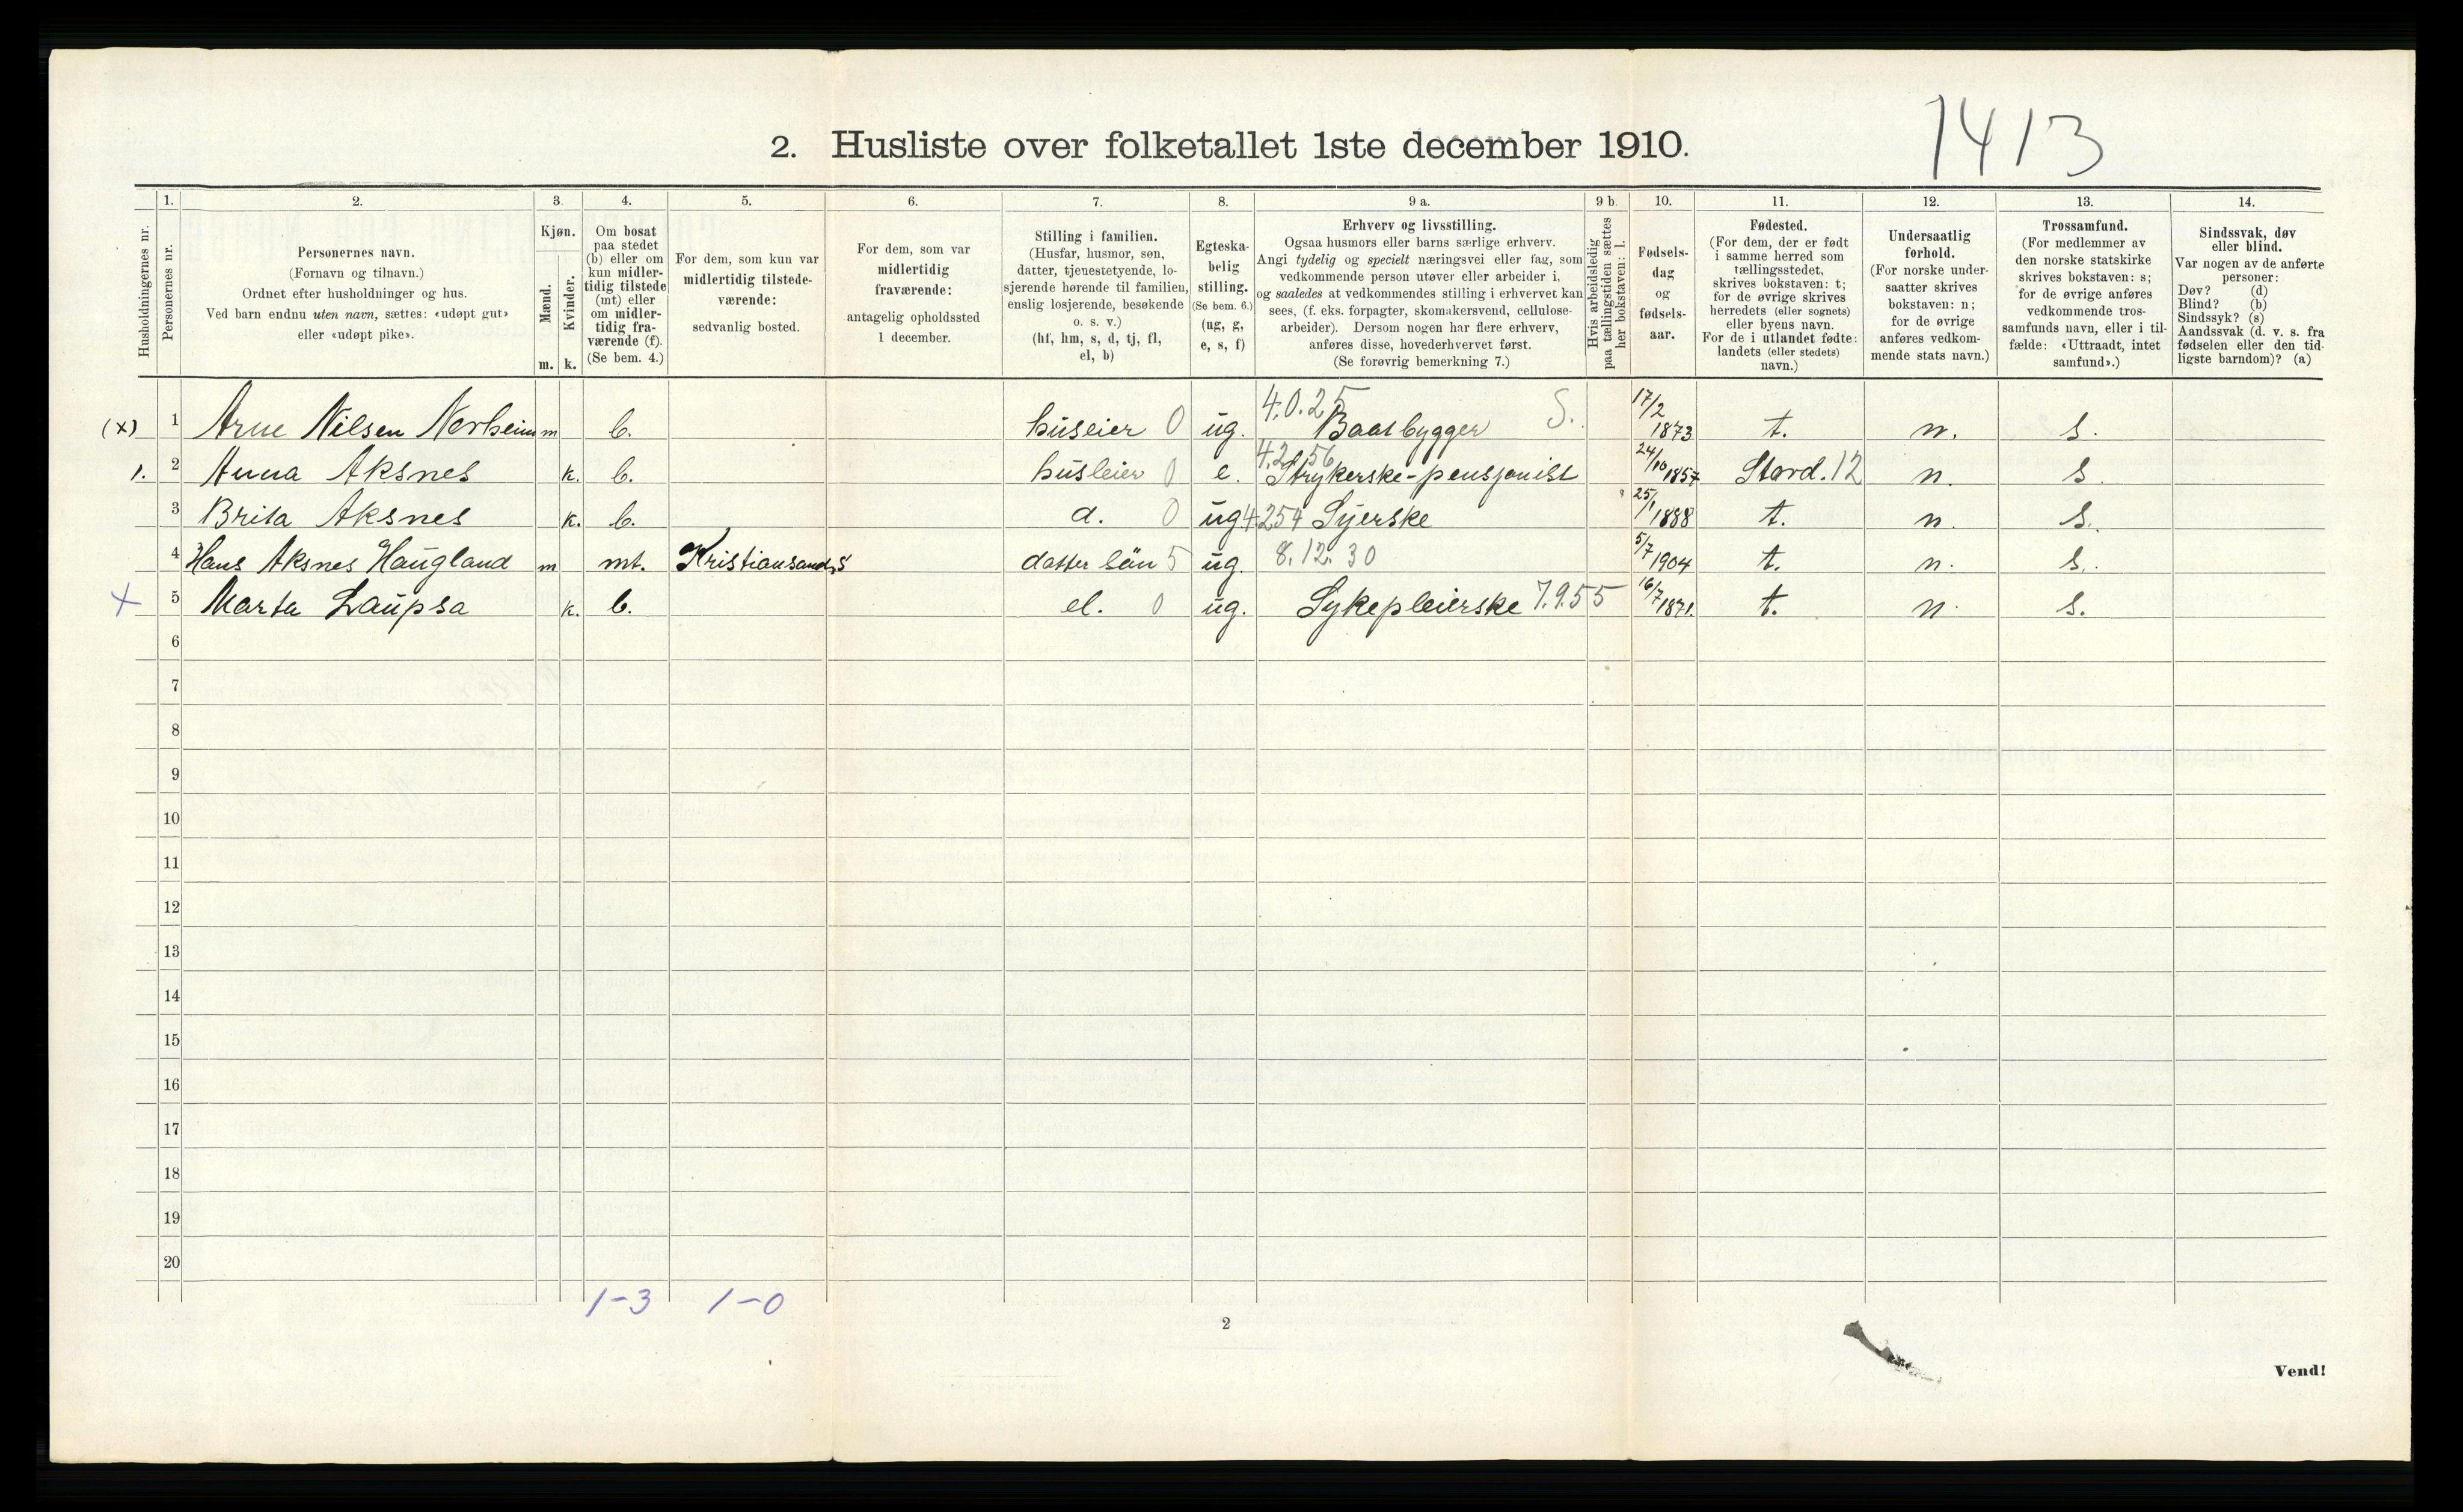 2. Husliste over folketallet 1ste december 1910.
1413
1. 2. 3. 4. 5. 6. 7. 8. 9 a. 9 b. 10. 11. 12. 13. 14.
Husholdningernes nr.
Personernes nr.
Personernes navn.
(Fornavn og tilnavn.)
Ordnet efter husholdninger og hus.
Ved barn endnu uten navn, sættes: «udøpt gut»
eller «udøpt pike».
Kjøn.
Mænd.
Kvinder.
m. k.
Om bosat
paa stedet
(b) eller om
kun midler-
tidig tilstede
(mt) eller
om midler-
tidig fra-
værende (f).
(Se bem. 4.)
For dem, som kun var
midlertidig tilstede-
værende:
sedvanlig bosted.
For dem, som var
midlertidig
fraværende:
antagelig opholdssted
1 december.
Stilling i familien.
(Husfar, husmor, søn,
datter, tjenestetyende, lo-
sjerende hørende til familien,
enslig losjerende, besøkende
o. s. v.)
(hf, hm, s, d, tj, fl,
el, b)
Egteska-
belig
stilling.
(Se bem. 6.)
(ug, g,
e, s, f)
Erhverv og livsstilling.
Ogsaa husmors eller barns særlige erhverv.
Angi tydelig og specielt næringsvei eller fag, som
vedkommende person utøver eller arbeider i,
og saaledes at vedkommendes stilling i erhvervet kan
sees, (f. eks. forpagter, skomakersvend, cellulose-
arbeider). Dersom nogen har flere erhverv,
anføres disse, hovederhvervet først.
(Se forøvrig bemerkning 7.)
Hvis arbeidsledig
paa tællingstiden sættes
her bokstaven: l.
Fødsels-
dag
og
fødsels-
aar.
Fødested.
(For dem, der er født
i samme herred som
tællingsstedet,
skrives bokstaven: t;
for de øvrige skrives
herredets (eller sognets)
eller byens navn.
For de i utlandet fødte:
landets (eller stedets)
navn.)
Undersaatlig
forhold.
(For norske under-
saatter skrives
bokstaven: n;
for de øvrige
anføres vedkom-
mende stats navn.)
Trossamfund.
(For medlemmer av
den norske statskirke
skrives bokstaven: s;
for de øvrige anføres
vedkommende tros-
samfunds navn, eller i til-
fælde: «Uttraadt, intet
samfund».)
Sindssvak, døv
eller blind.
Var nogen av de anførte
personer:
Døv? (d)
Blind? (b)
Sindssyk? (s)
Aandssvak (d. v. s. fra
fødselen eller den tid-
ligste barndom)? (a)
(x) 1 Arne Nilsen Norheim m b. huseier 0 ug. 4.0.25 Baatbygger S. 17/2 1873 t. n. s.
1. 2 Anna Aksnes k. b. husleier 0 e. 4.2.56 Strykerske-pensjonist 24/10 1857 Stord. 12 n. s.
3 Brita Aksnes k. b. d. 0 ug 4254 Syerske 25/1 1888 t. n. s.
4 Hans Aksnes Haugland m mt. Kristiansand S datter sön 5 ug. 8.12.30 5/7 1904 t. n. s.
x 5 Marta Laupsa k. b. el. 0 ug. Sykepleierske 7.9.55 16/7 1871. t. n. s.
6
7
8
9
10
11
12
13
14
15
16
17
18
19
20
1-3 1-0
2
Vend!